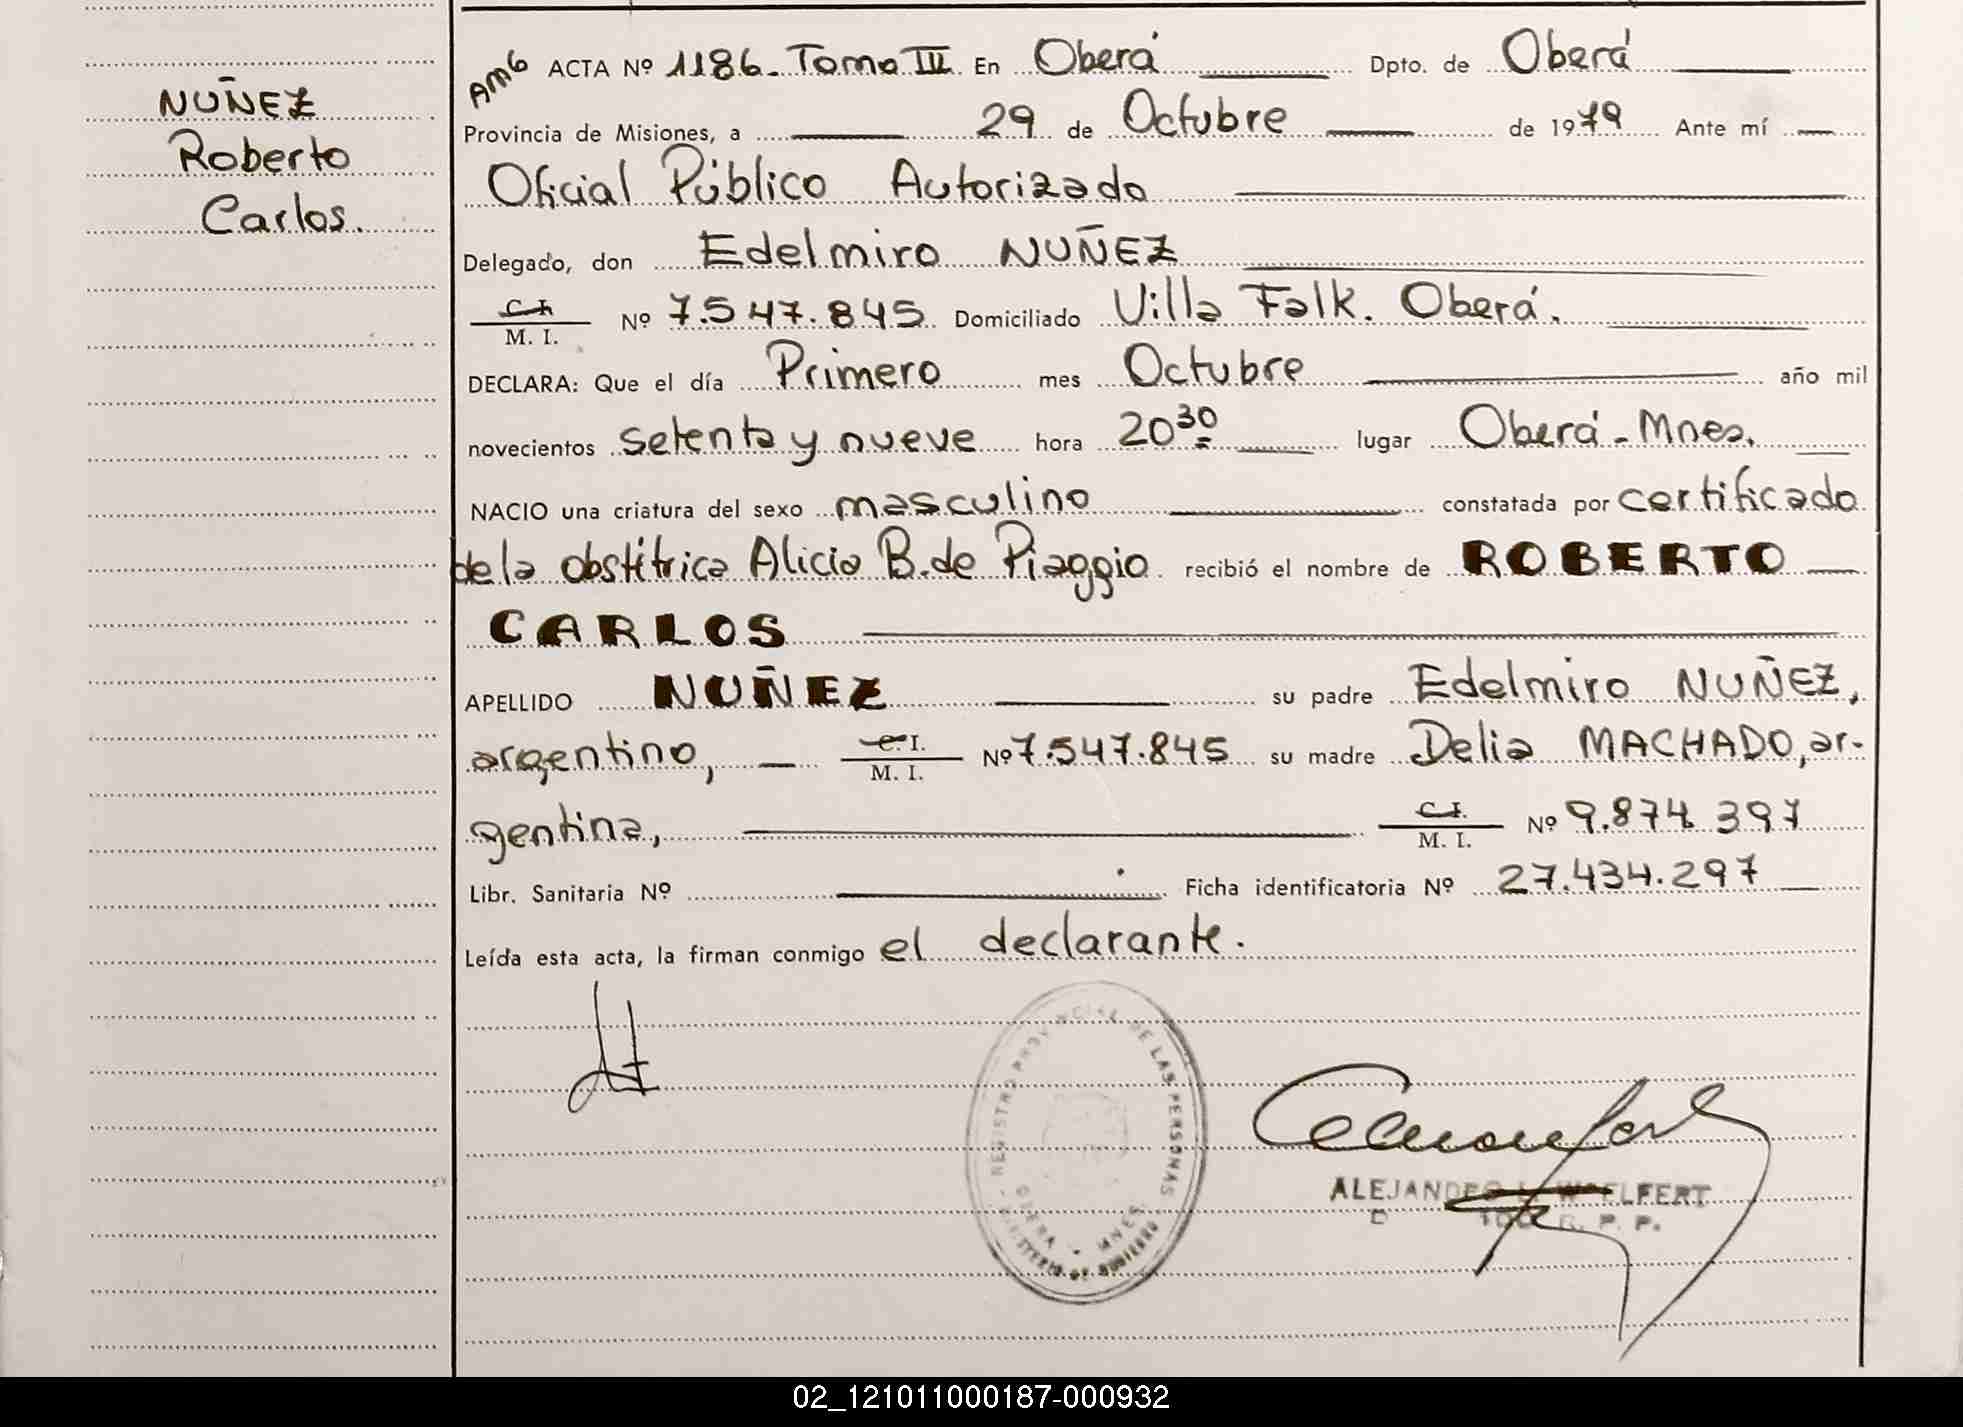 NUÑEZ
Roberto
Carlos.
AMG ACTA Nº 1186. Tomo III En Oberá Dpto. de Oberá
Provincia de Misiones, a 29 de Octubre de 1979 Ante mí
Oficial Público Autorizado
Delegado, don Edelmiro NUÑEZ
C. I.
M. I. Nº 7.547.845 Domiciliado Villa Falk. Oberá.
DECLARA: Que el día Primero mes Octubre año mil
novecientos setenta y nueve hora 20 30 lugar Oberá - Mnes.
NACIO una criatura del sexo masculino constatada por certificado
de la obstítrica Alicia B. de Piaggio recibió el nombre de ROBERTO
CARLOS
APELLIDO NUÑEZ su padre Edelmiro NUÑEZ,
argentino, C. I. M. I. Nº 7.547.845 su madre Delia MACHADO, ar-
gentina, C. I. M. I. Nº 9.874.397
Libr. Sanitaria Nº Ficha identificatoria Nº 27.434.297
Leída esta acta, la firman conmigo el declarante.
REGISTRO PROVINCIAL DE LAS PERSONAS
OBERA - MNES.
MINISTERIO DE GOBIERNO
ALEJANDRO L. WOELFERT
R. P. P.
02_121011000187-000932